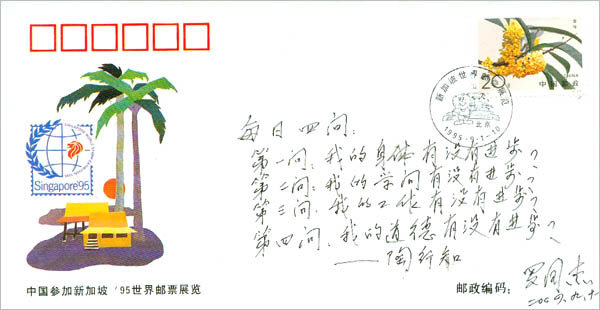 中国邮政
20
新加坡世界邮票展览
北京
1995·9·1-10
Singapore'95
每日四问：
第一问：我的身体有没有进步？
第二问：我的学问有没有进步？
第三问：我的工作有没有进步？
第四问：我的道德有没有进步？
——陶行知
中国参加新加坡'95世界邮票展览
邮政编码：